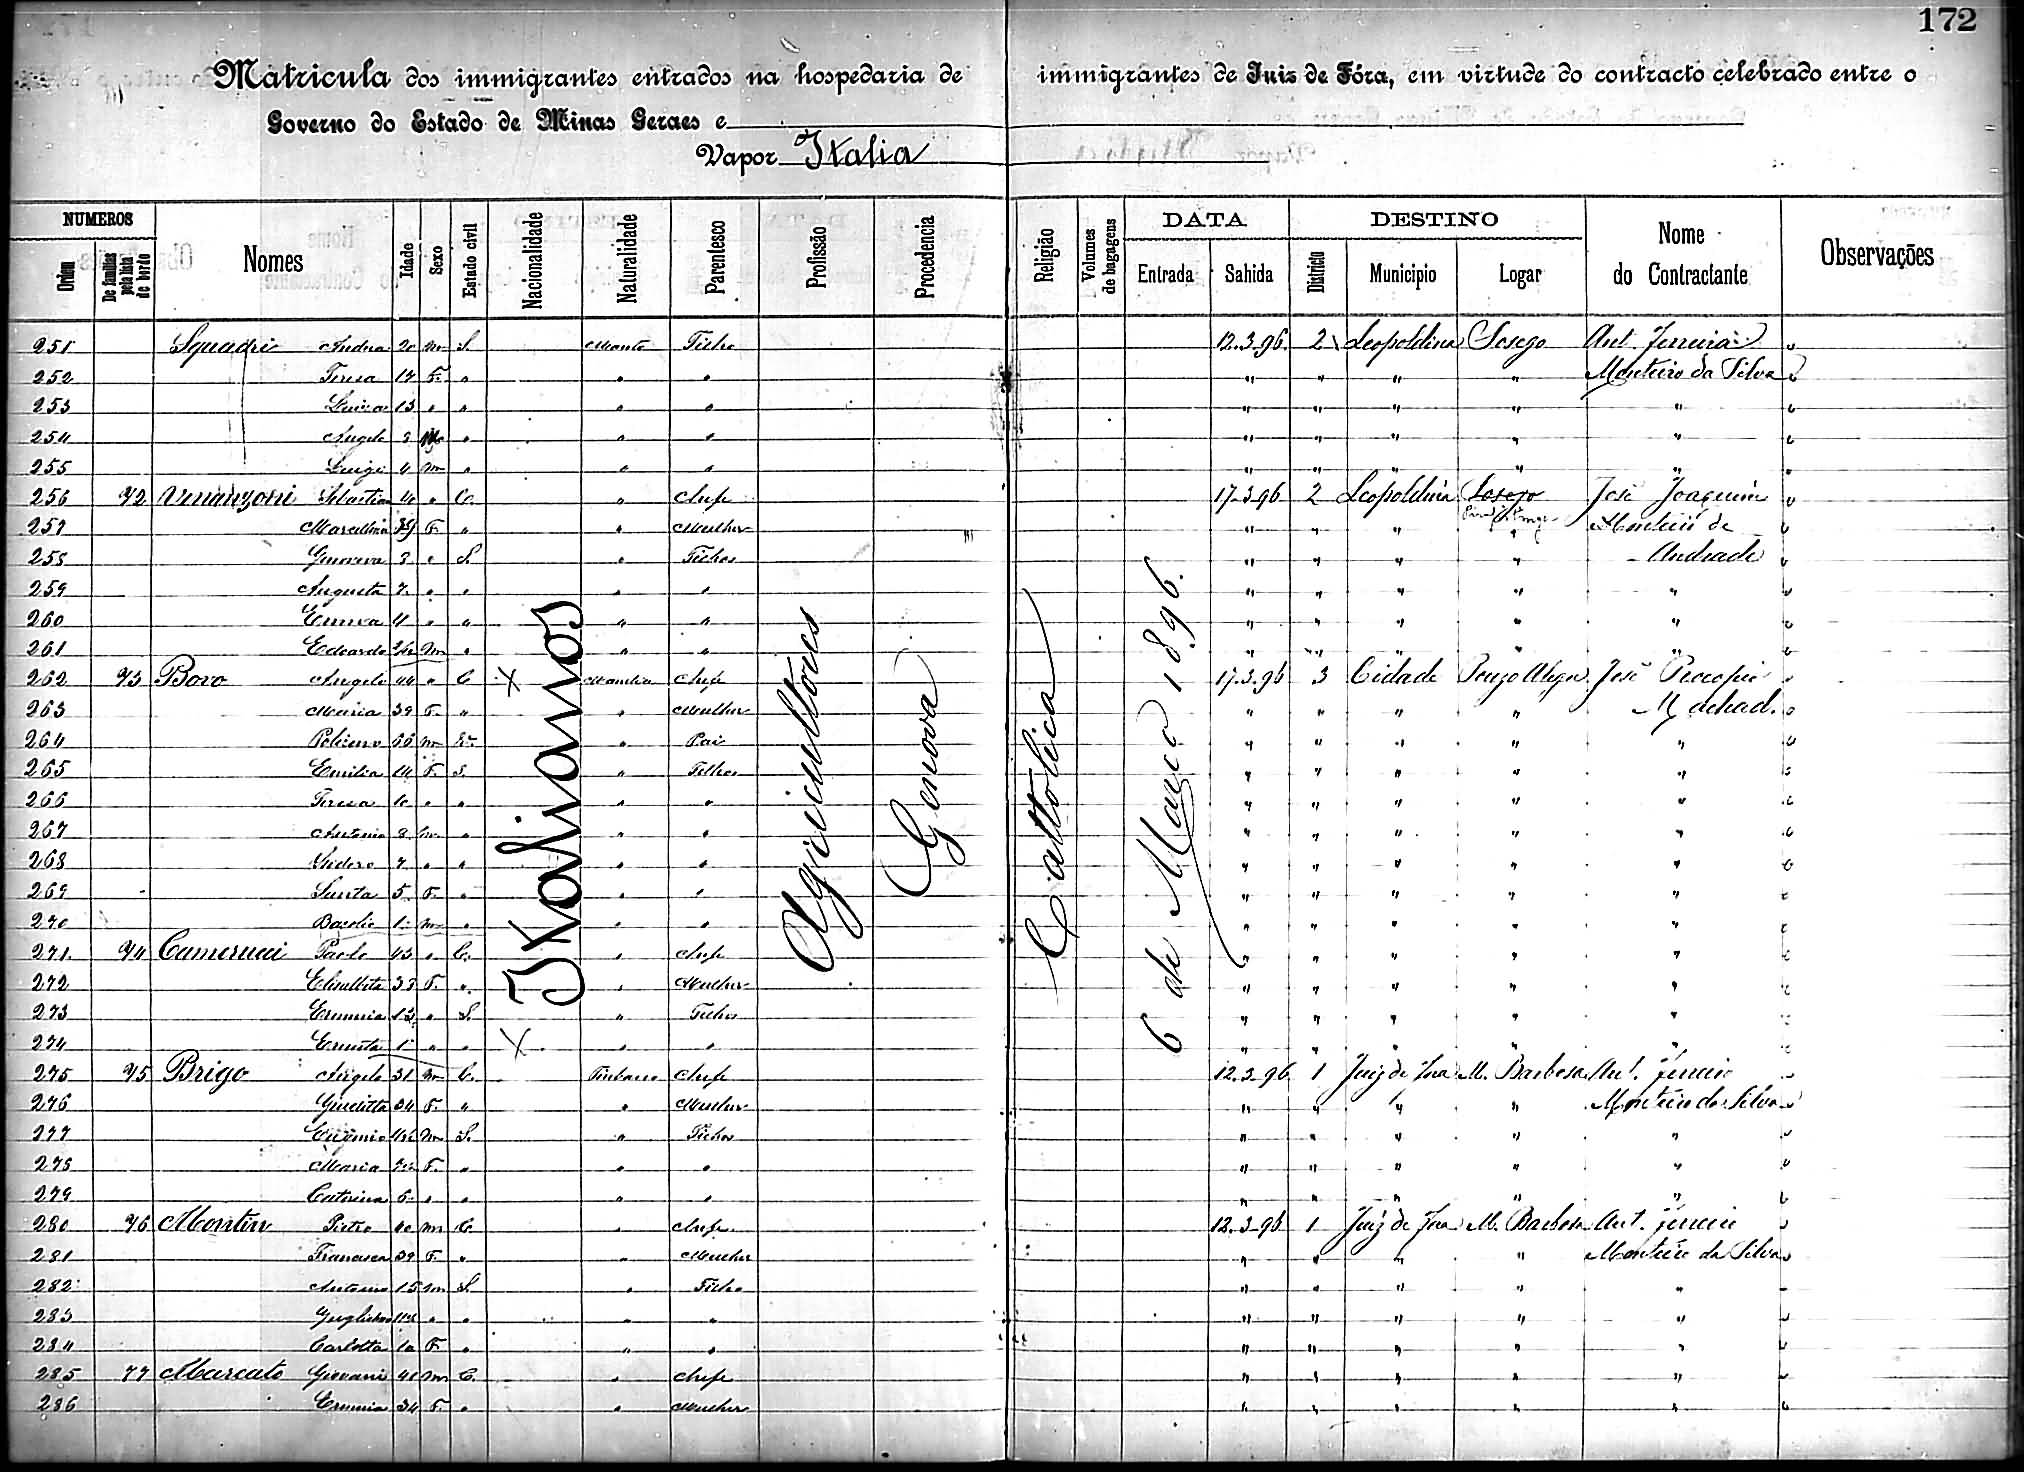 172
Matricula dos immigrantes entrados na hospedaria de immigrantes de Juiz de Fóra, em virtude do contracto celebrado entre o
Governo do Estado de Minas Geraes e
Vapor Italia
NUMEROS
Ordem
De familias pela lista de bordo
Nomes
Idade
Sexo
Estado civil
Nacionalidade
Naturalidade
Parentesco
Profissão
Procedencia
Religião
Volumes de bagagens
DATA
Entrada
Sahida
DESTINO
Districto
Municipio
Logar
Nome do Contractante
Observações
Italianos
Agricultores
Genova
Cattolica
6 de Março 1896.
251 Squadri Andrea 20 m S. Filho 12.3.96. 2 Leopoldina Socego Ant. Ferreira
252 Teresa 17 F. " " " " " " " Monteiro da Silva
253 Luiza 13 " " " " " " " " " "
254 Angelo 8 " " " " " " " " "
255 Luigi 4 m " " " " " " "
256 72 Sebastian " C. " Chefe 17.3.96 2 Leopoldina José Joaquim
257 Marcellina 39 F. " " Mulher " " " " Monteiro de
258 Genoveva 8 " S. " Filhos " " " " Andrade
259 Augusta 7 " " " " " " " " "
260 4 " " " " " " " " "
261 Edoardo m " " " " " " " "
262 73 Bovo Angelo 44 " C Chefe 17.3.96 3 Cidade Pouzo Alegre José Procopio
263 Maria 39 F. " " Mulher " " " " Machad.
264 66 m " Pai " " " " "
265 Emilia 14 F. S. " Filhos " " " " "
266 Teresa 10 " " " " " " " " "
267 Antonio 8 m " " " " " " " "
268 Isidoro 7 " " " " " " " " "
269 Santa 5 F. " " " " " " " "
270 1 m " " " " " " " "
271 74 Paolo 43 " C. " Chefe " " " " "
272 Elisabetta 38 F. " " Mulher " " " " "
273 Erminia 12 " S. " Filhos " " " " "
274 Ernesta 1 " " " " " " " " "
275 75 Brigo Angelo 31 m C. Chefe 12.3.96 1 Juiz de Fora M. Barbosa Ant. Ferreira
276 Giuditta 34 F. " " Mulher " " " " Monteiro da Silva
277 Eugenio m S. " Filhos " " " " "
278 Maria F. " " " " " " " "
279 Caterina 6 " " " " " " " " "
280 76 Montin Pietro 40 m C. " Chefe 12.3.96 1 Juiz de Fora M. Barbosa Ant. Ferreira
281 Francesca 39 F. " " Mulher " " " " Monteiro da Silva
282 Antonio 15 m S. " Filho " " " " "
283 " " " " " " " " "
284 Carlotta 10 F. " " " " " " " "
285 77 Marcato Giovani 40 m C. " Chefe " " " " "
286 Erminia 34 F. " " Mulher " " " " "